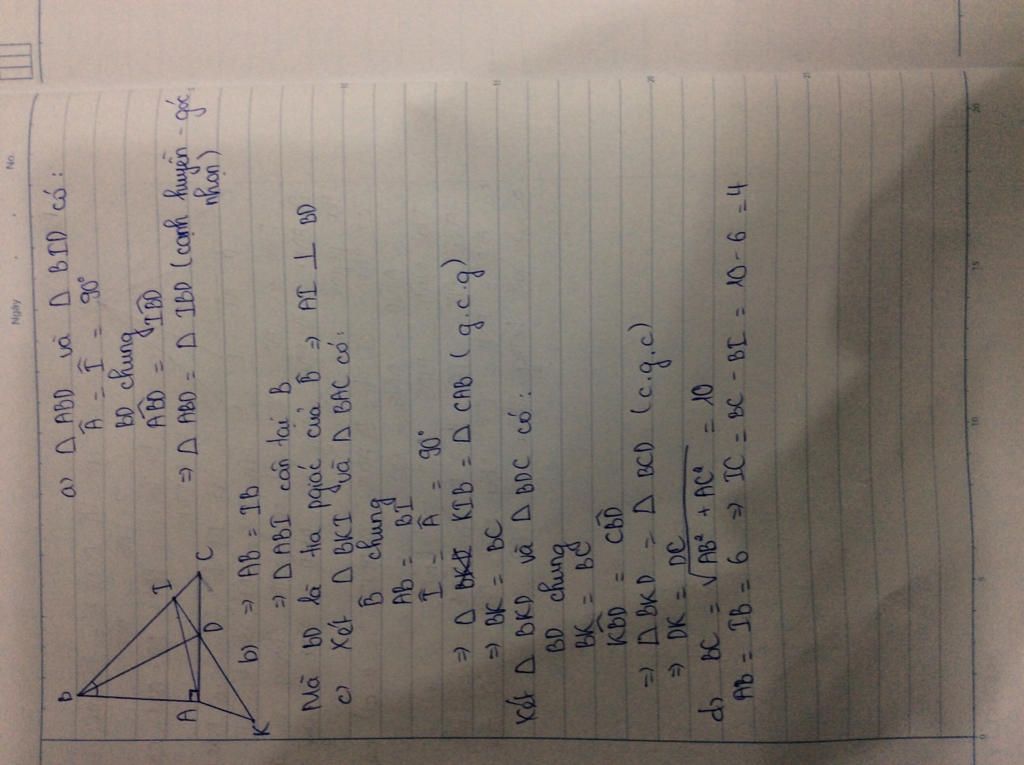 Ngày
No.
B
I
C
D
A
K
a) Δ ABD và Δ BID có:
Â = Î = 90°
BD chung
ABD̂ = IBD̂
=> Δ ABD = Δ IBD (cạnh huyền - góc
nhọn)
b) => AB = IB
=> Δ ABI cân tại B
Mà BD là tia pgiác của B̂ => AI ⊥ BD
c) Xét Δ BKI và Δ BAC có:
B̂ chung
AB = BI
Î = Â = 90°
=> Δ KIB = Δ CAB (g.c.g)
=> BK = BC
Xét Δ BKD và Δ BDC có:
BD chung
BK = BC
KBD̂ = CBD̂
=> Δ BKD = Δ BCD (c.g.c)
=> DK = DC
d) BC = √AB² + AC² = 10
AB = IB = 6 => IC = BC - BI = 10 - 6 = 4
0
5
10
15
20
10
15
20
25